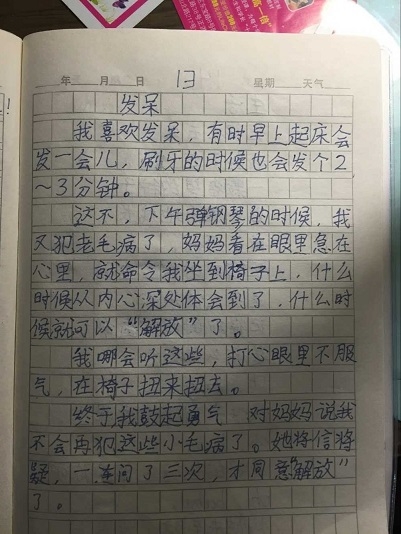 年 月 日 13 星期 天气
发呆
我喜欢发呆，有时早上起床会
发一会儿，刷牙的时候也会发个2
~3分钟。
这不，下午弹钢琴的时候，我
又犯老毛病了，妈妈看在眼里急在
心里，就命令我坐到椅子上，什么
时候从内心深处体会到了，什么时
候就可以“解放”了。
我哪会听这些，打心眼里不服
气，在椅子扭来扭去。
终于我鼓起勇气 对妈妈说我
不会再犯这些小毛病了。她将信将
疑，一连问了三次，才同意“解放”
了。